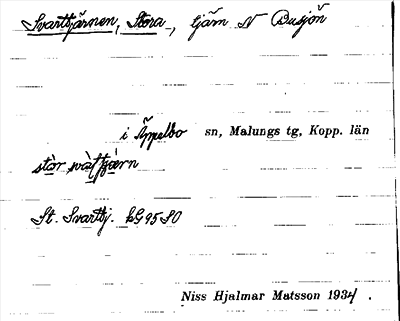 Svarttjärnen, Stora, tjärn N Busjön
i Äppelbo sn, Malungs tg, Kopp. län
stòr svàt̀tjæ̀rn
St. Svarttj. kG 95 SO
Niss Hjalmar Matsson 1934.